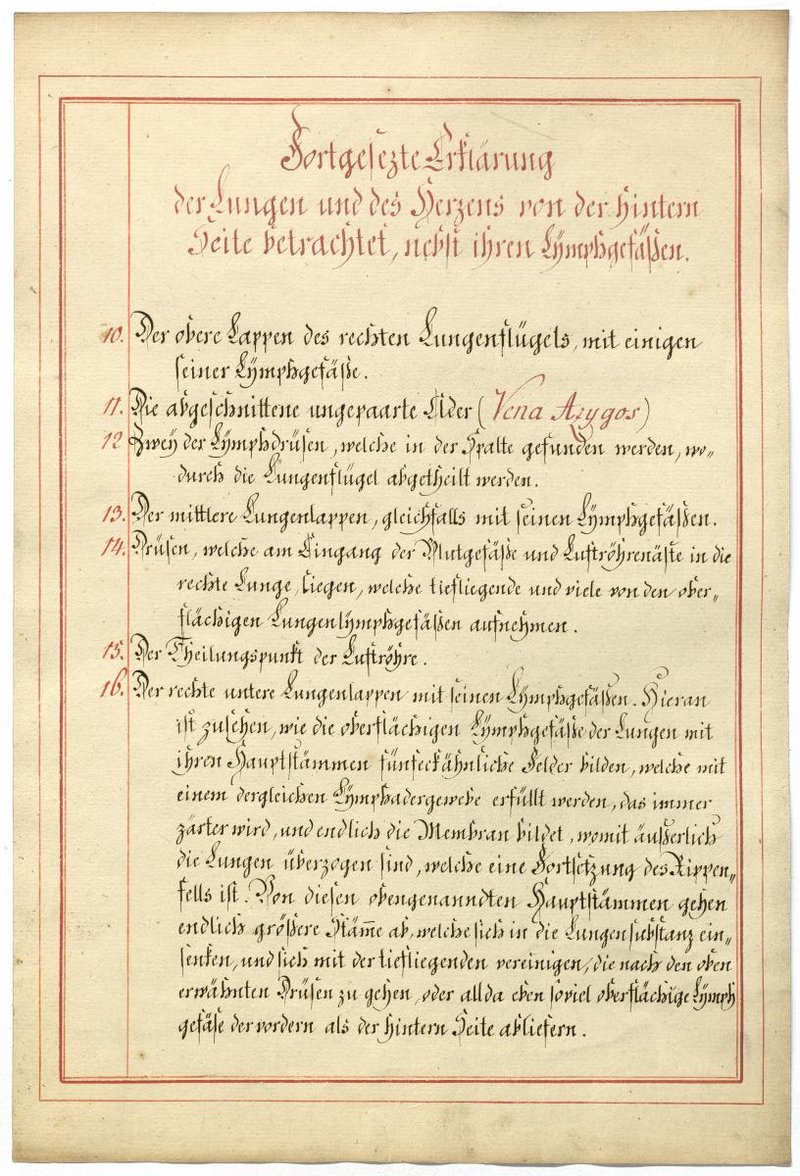 Fortgesezte Erklärung
der Lungen und des Herzens von der hintern
Seite betrachtet, nebst ihren Lÿmphgefäßen.
10. Der obere Lappen des rechten Lungenflügels, mit einigen
seiner Lÿmphgefäße.
11. Die abgeschnittene ungepaarte Ader (Vena Azygos)
12 Zweÿ der Lÿmphdrüsen, welche in der Spalte gefunden werden, wo„
durch die Lungenflügel abgetheilt werden.
13. Der mittlere Lungenlappen, gleichfalls mit seinen Lÿmphgefäßen.
14. Drüsen, welche am Eingang der Blutgefäße und Luftröhrenäste in die
rechte Lunge, liegen, welche tiefliegende und viele von den ober„
flächigen Lungenlÿmphgefäßen aufnehmen.
15. Der Theilungspunkt der Luftröhre.
16. Der rechte untere Lungenlappen mit seinen Lÿmphgefäßen. Hieran
ist zusehen, wie die oberflächigen Lÿmphgefäße der Lungen mit
ihren Hauptstämmen fünfeckähnliche Felder bilden, welche mit
einem dergleichen Lÿmphadergewebe erfüllt werden, das immer
zärter wird, und endlich die Membran bildet, womit äußerlich
die Lungen überzogen sind, welche eine Fortsetzung des Rippen„
fells ist. Von diesen obengenanndten Hauptstämmen gehen
endlich größere Stäm̅e ab, welche sich in die Lungensubstanz ein„
senken, und sich mit der tiefliegenden vereinigen, die nach den oben
erwähnten Drüsen zu gehen, oder allda eben soviel oberflächige Lÿmph
gefäse der vordern als der hintern Seite abliefern.